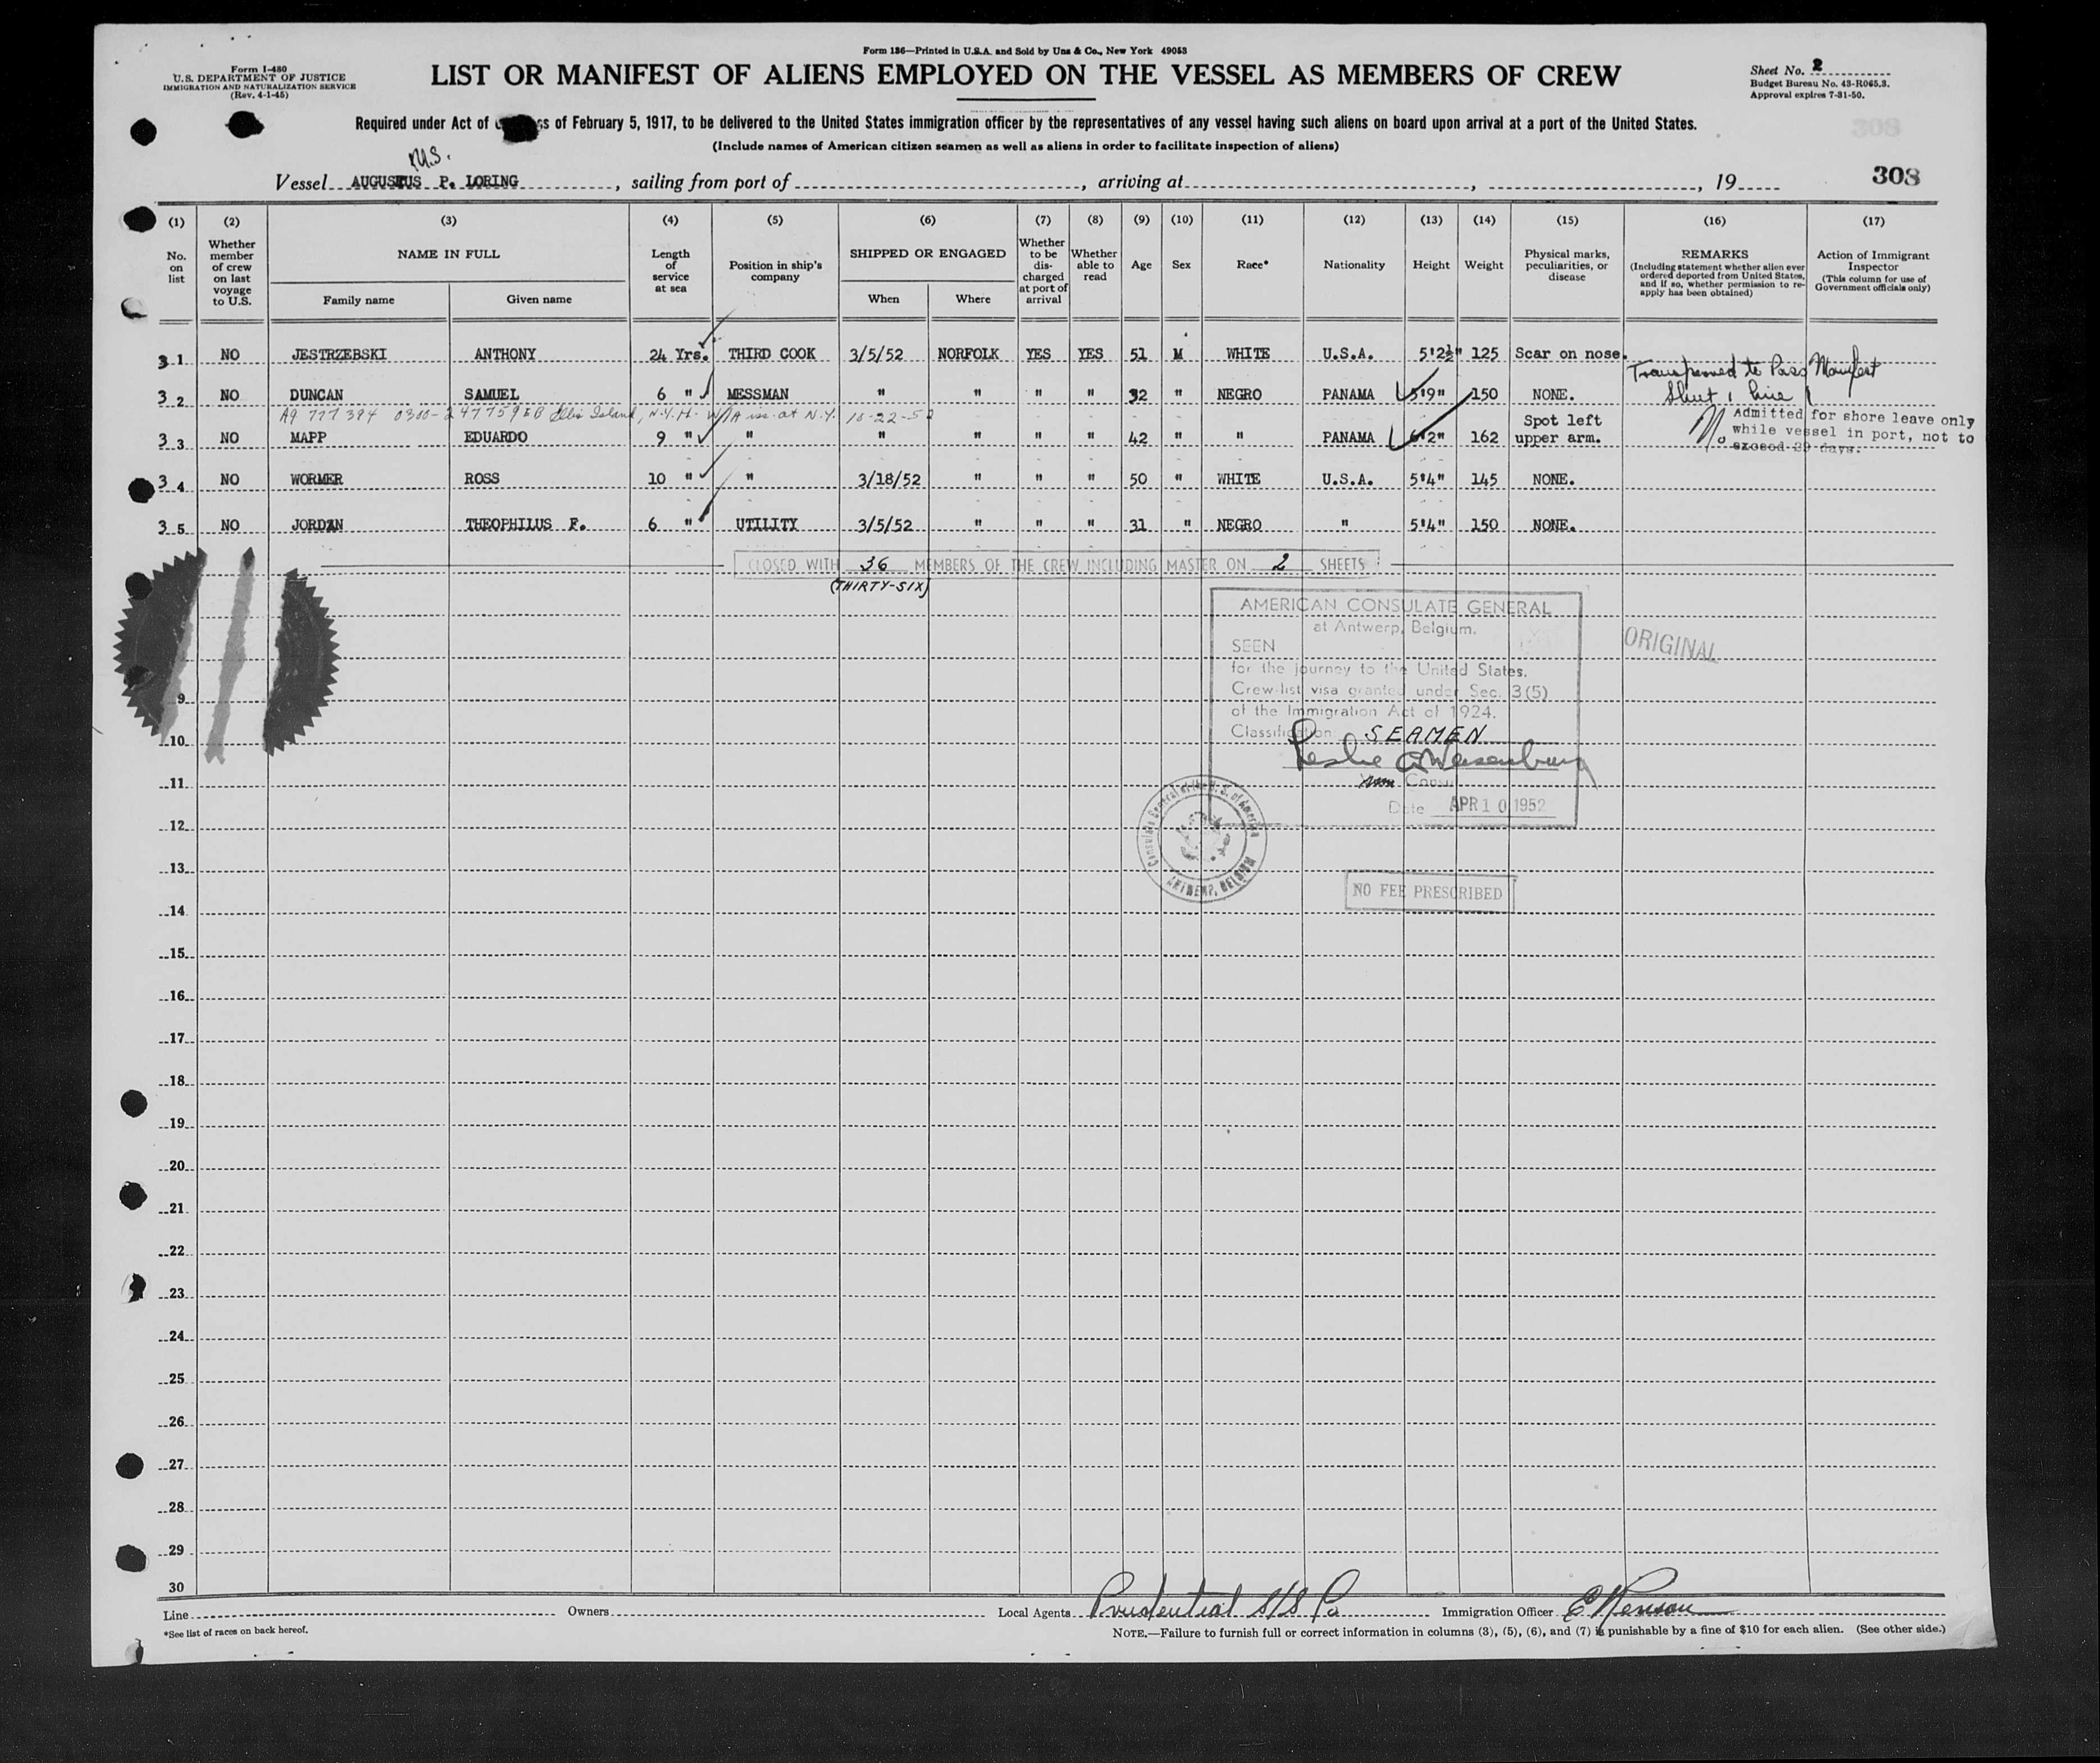 Form 136—Printed in U.S.A. and Sold by Unz & Co., New York 49053
Form I-480
U.S. DEPARTMENT OF JUSTICE
IMMIGRATION AND NATURALIZATION SERVICE
(Rev. 4-1-45)
LIST OR MANIFEST OF ALIENS EMPLOYED ON THE VESSEL AS MEMBERS OF CREW
Sheet No. 2
Budget Bureau No. 43-R065.3.
Approval expires 7-31-50.
Required under Act of ss of February 5, 1917, to be delivered to the United States immigration officer by the representatives of any vessel having such aliens on board upon arrival at a port of the United States.
308
(Include names of American citizen seamen as well as aliens in order to facilitate inspection of aliens)
M.S.
Vessel AUGUSTUS P. LORING, sailing from port of , arriving at , , 19
308
(1) (2) (3) (4) (5) (6) (7) (8) (9) (10) (11) (12) (13) (14) (15) (16) (17)
No. on list
Whether member of crew on last voyage to U.S.
NAME IN FULL
Family name
Given name
Length of service at sea
Position in ship's company
SHIPPED OR ENGAGED
When
Where
Whether to be discharged at port of arrival
Whether able to read
Age
Sex
Race*
Nationality
Height
Weight
Physical marks, peculiarities, or disease
REMARKS
(Including statement whether alien ever ordered deported from United States, and if so, whether permission to re-apply has been obtained)
Action of Immigrant Inspector
(This column for use of Government officials only)
31 NO JESTRZEBSKI ANTHONY 24 Yrs. THIRD COOK 3/5/52 NORFOLK YES YES 51 M WHITE U.S.A. 5'2½" 125 Scar on nose.
Transferred to Pass Manifest
32 NO DUNCAN SAMUEL 6 " MESSMAN " " " " 32 " NEGRO PANAMA 5'9" 150 NONE.
Sheet 1 Line 1
A9 777 384 0300-247759 Ellis Island, N.Y.H. W/A iss. at N.Y. 10-22-52
Spot left
33 NO MAPP EDUARDO 9 " " " " " " 42 " " PANAMA 6'2" 162 upper arm.
Admitted for shore leave only
while vessel in port, not to
exceed 29 days.
34 NO WORMER ROSS 10 " " 3/18/52 " " " 50 " WHITE U.S.A. 5'4" 145 NONE.
35 NO JORDAN THEOPHILUS F. 6 " UTILITY 3/5/52 " " " 31 " NEGRO " 5'4" 150 NONE.
CLOSED WITH 36 MEMBERS OF THE CREW INCLUDING MASTER ON 2 SHEETS
(THIRTY-SIX)
AMERICAN CONSULATE GENERAL
at Antwerp, Belgium.
SEEN
for the journey to the United States.
Crew-list visa granted under Sec. 3(5)
of the Immigration Act of 1924.
Classification SEAMEN
Leslie A Weisenburg
Consul
Date APR 10 1952
ORIGINAL
Consulate General of the U. S. of America
ANTWERP, BELGIUM
NO FEE PRESCRIBED
9
10
11
12
13
14
15
16
17
18
19
20
21
22
23
24
25
26
27
28
29
30
Line Owners Local Agents Prudential S/S Co Immigration Officer
*See list of races on back hereof.
NOTE.—Failure to furnish full or correct information in columns (3), (5), (6), and (7) is punishable by a fine of $10 for each alien. (See other side.)